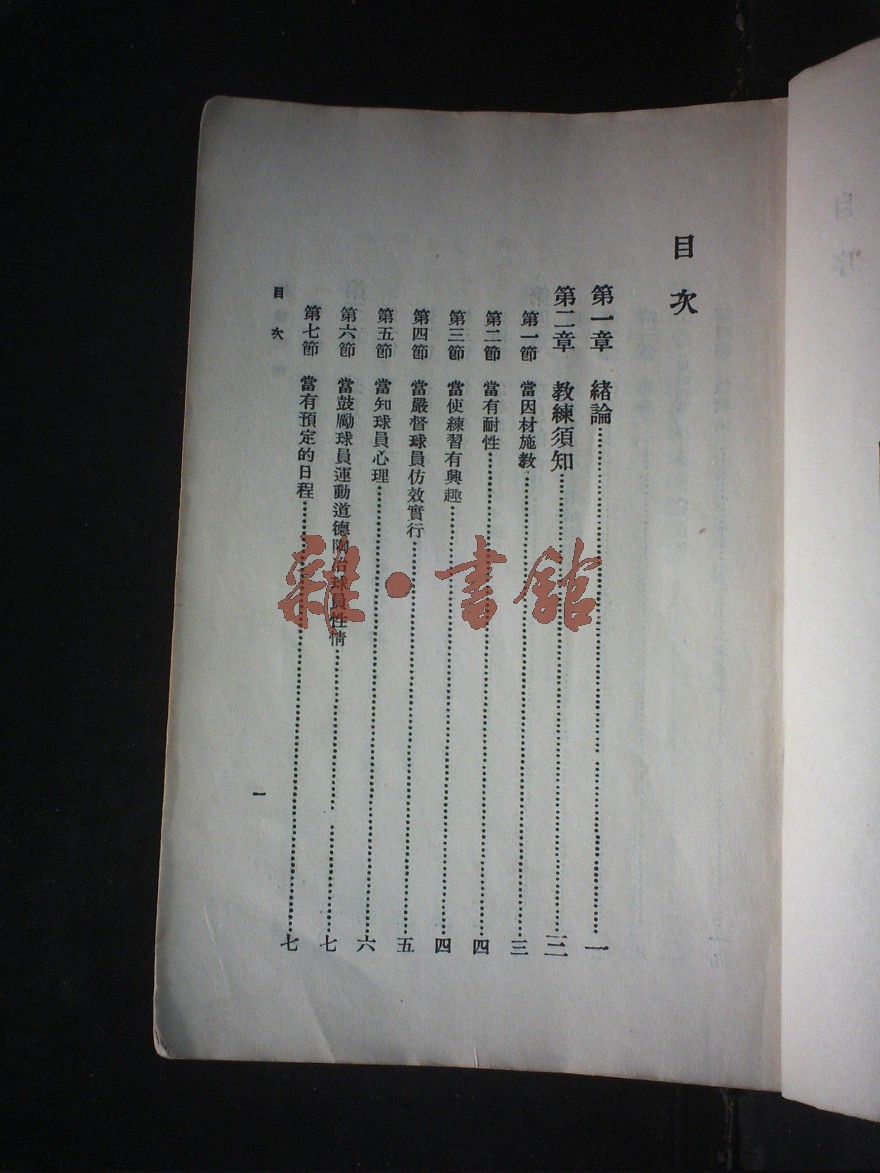 目次
第一章 緒論……一
第二章 教練須知……三
第一節 當因材施教……三
第二節 當有耐性……四
第三節 當使練習有興趣……四
第四節 當嚴督球員仿效實行……五
第五節 當知球員心理……六
第六節 當鼓勵球員運動道德陶冶球員性情……七
第七節 當有預定的日程……七
目次
一
雜·書館